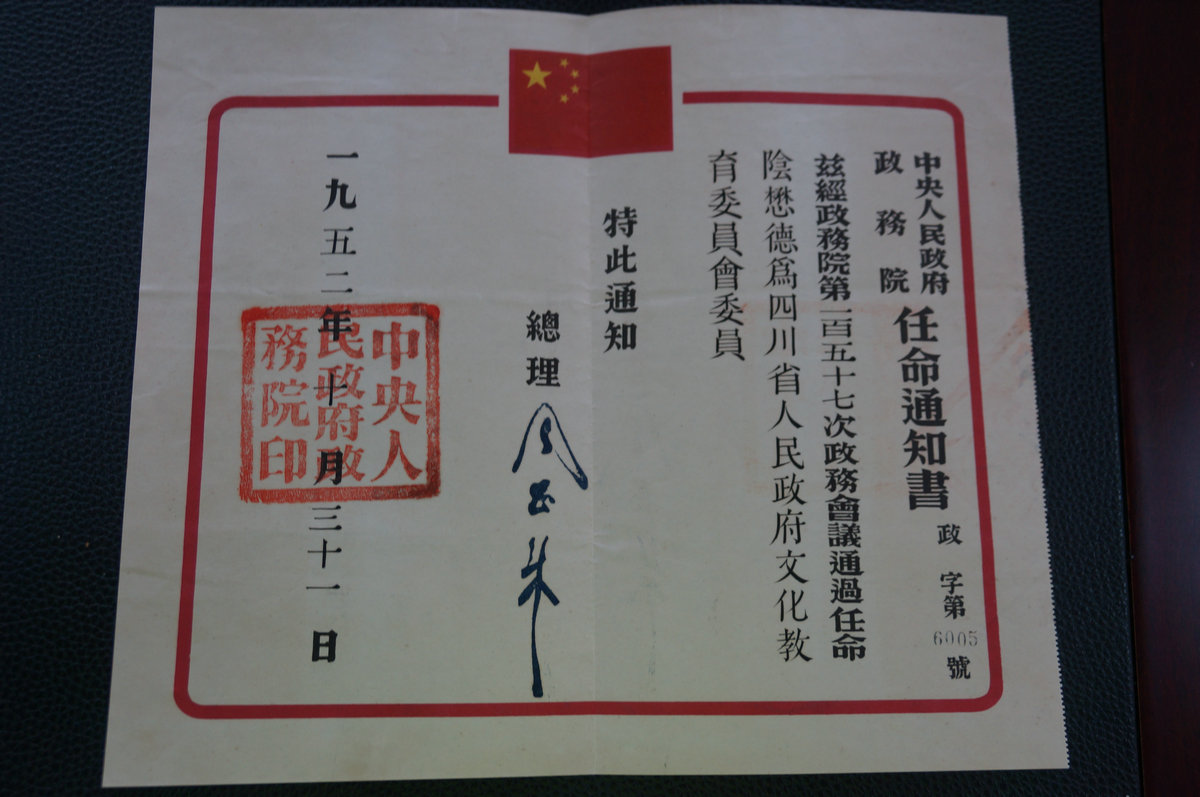 中央人民政府
政務院
任命通知書
政字第6005號
茲經政務院第一百五十七次政務會議通過任命
陰懋德爲四川省人民政府文化教
育委員會委員
特此通知
總理 周恩來
一九五二年十月三十一日
中央人
民政府政
務院印